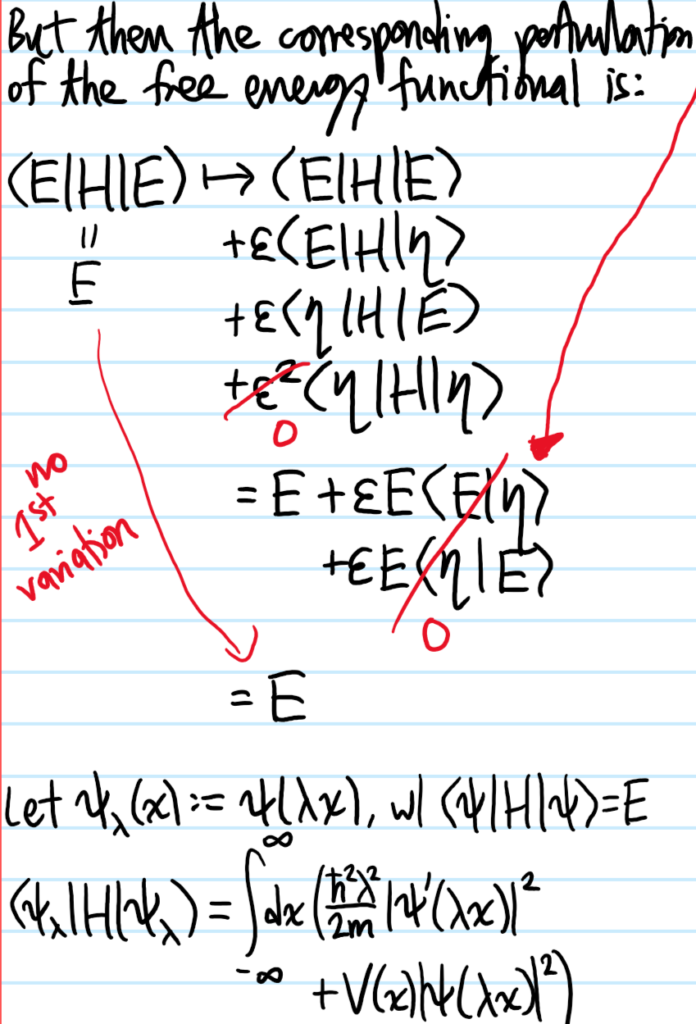 But then the corresponding perturbation
of the free energy functional is:
⟨E|H|E⟩ ↦ ⟨E|H|E⟩
=
E
+ε⟨E|H|η⟩
+ε⟨η|H|E⟩
+ε²⟨η|H|η⟩
0
no
1st
variation
= E + εE⟨E|η⟩
+εE⟨η|E⟩
0
= E
Let ψ_λ(x) := ψ(λx), w/ ⟨ψ|H|ψ⟩=E
⟨ψ_λ|H|ψ_λ⟩ = ∫_{-∞}^{∞} dx (ħ²λ²/2m |ψ'(λx)|²
+ V(x)|ψ(λx)|²)